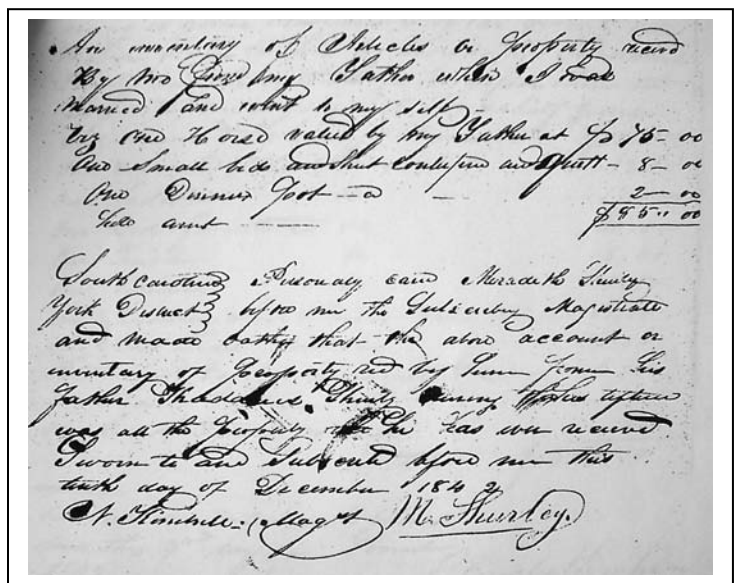 An inventory of Articles or Property receivd
By me from my Father when I was
married and went to my self -
viz One Horse valued by my Father at $ 75 - 00
One Small bed and counterpin and quilt - 8 - 00
One Dinner Pot - - 2 - 00
amt $85 " 00
South carolina Personaly came Meradith Shurly
York District before me the Subscribing Magistrate
and made oathe that the above account or
inventory of Property recd by him from his
father Thaddeus Shurly during his life time
was all the Property he has ever received
Sworn to and Subscribd before me this
tenth day of December 1842
Magst M. Shurley